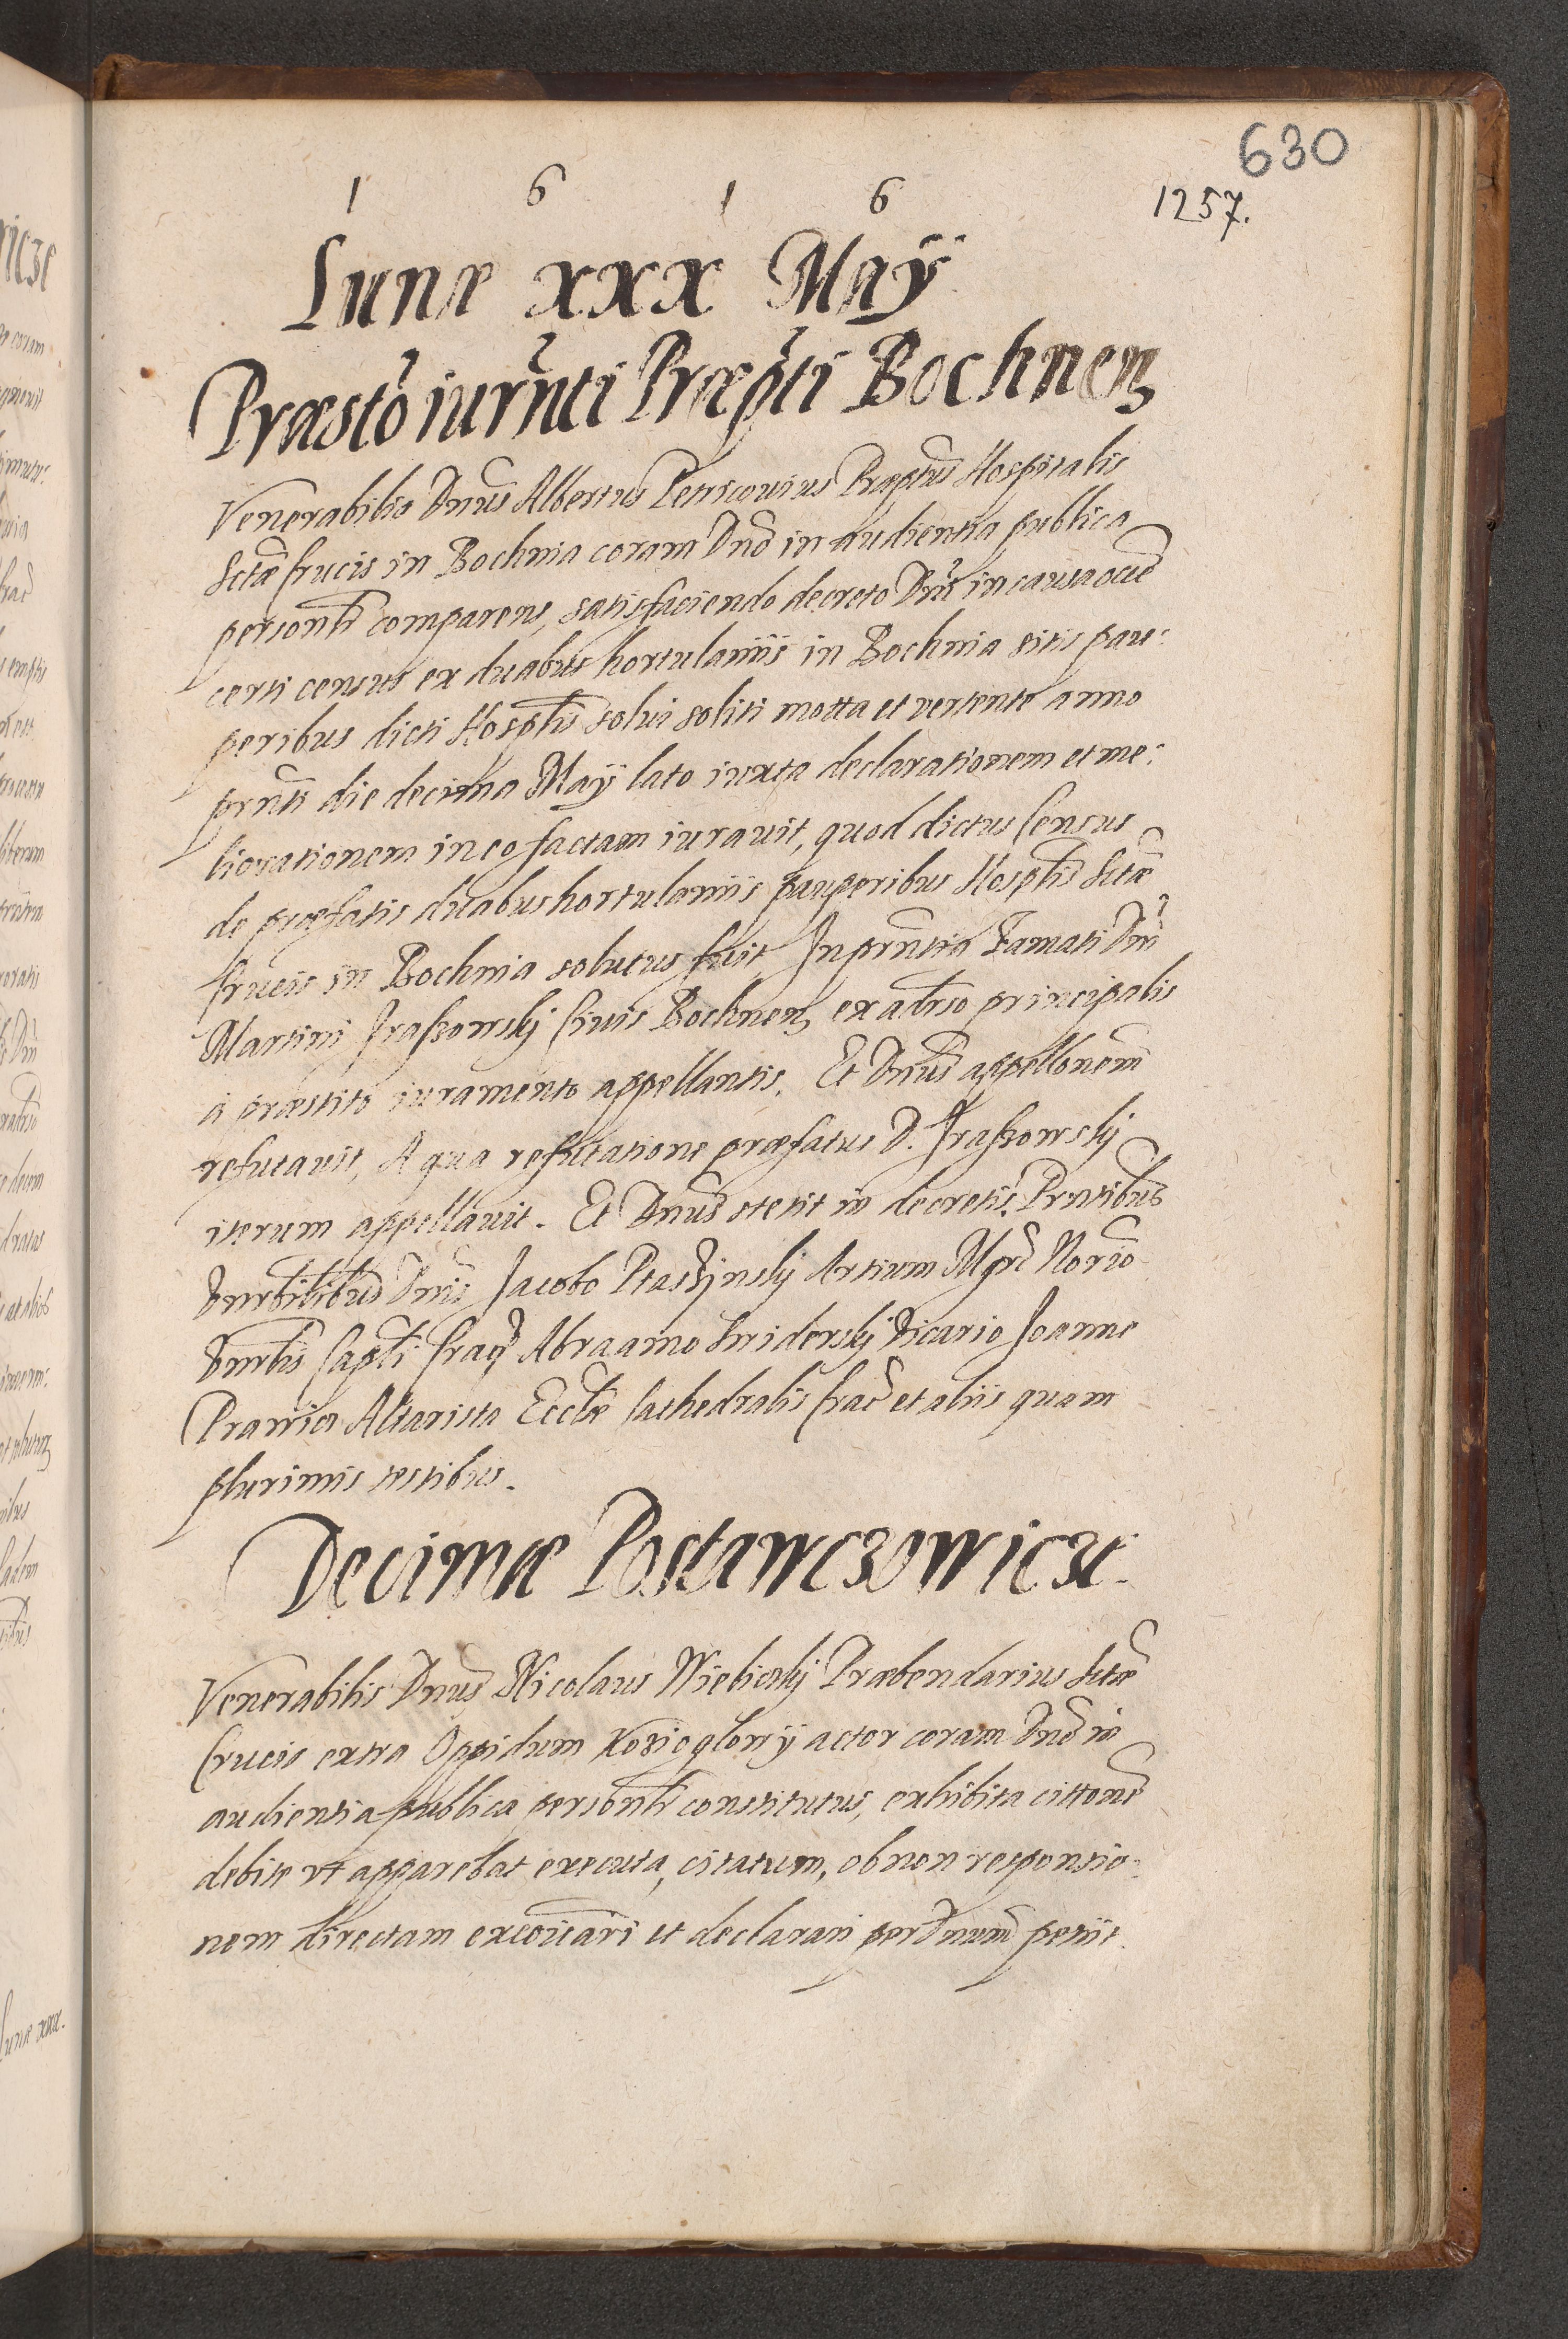 630
1257.
1 6 1 6
Lunæ xxx Maÿ
Præstõ iurñti Præpti Bochneñ
Venerabilis Dnus Albertus Petricouius Præptus Hospitalis
Sctæ Crucis in Bochnia coram Dnõ in audientia publica
personlr comparens, satisfaciendo decreto Dni in causa ocñe
certi census ex duabus hortulaniis in Bochnia sitis pau:
peribus dicti Hosptlis solui soliti motta et vertente anno
prnti die decima Maÿ lato iuxta declarationem et me:
liorationem in eo factam iurauit, quod dictus Census
de præfatis duabus hortulaniis pauperibus Hosptlis Sctæ
Crucis in Bochnia solutus fuit Inprntia Famati Dni
Martini Iraszowskÿ Ciuis Bochneñ ex aduerso principalis
a præstito iuramento appellantis. Et Dnus appellonem
refutauit, A qua refutatione præfatus D. Iraszowskÿ
iterum appellauit. Et Dnus stetit in decretis. Prntibus
Vnrbilibus Dnis Jacobo Ptaszÿnskÿ Artium Mgro Norio
Vnrlis Capli Crac Abraamo Swiderskÿ Vicario Joanne
Prawica Altarista Ecclæ Cathedralis Crac et aliis quam
plurimis testibus.
Decimæ Postawczowicze.
Venerabilis Dnus Nicolaus Wielickÿ Præbendarius Sctæ
Crucis extra Oppidum Kozioglowÿ actor coram Dno in
audientia publica personlr constitutus, exhibita cittone
debite vt apparebat executa, citatum, ob non responsio:
nem directam excoicari et declarari per Dnum petiit.